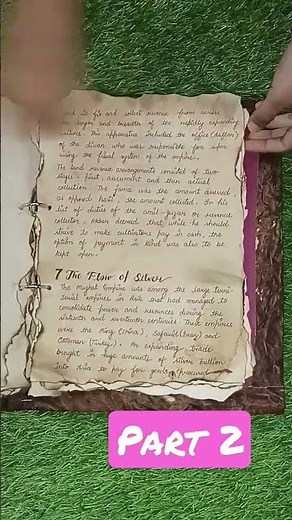 used to fix and collect revenue from across
the length and breadth of the rapidly expanding
empire. This apparatus included the office (daftar)
of the diwan who was responsible for super
vising the fiscal system of the empire.
The land revenue arrangements consisted of two
stages - first, assessment and then actual
collection. The Jama was the amount assessed
as opposed hasil, the amount collected. In his
list of duties of the amil-guzar or revenue
collector, Akbar decreed that while he should
strive to make cultivators pay in cash, the
option of payment in kind was also to be
kept open.
7 The Flow of Silver
The Mughal Empire was among the large Terri
torial empires in Asia that had managed to
consolidate power and resources during the
sixteenth and seventeenth centuries. These empires
were the Ming (China), Safavid (Iran) and
Ottoman (Turkey). An expanding trade
brought in huge amounts of silver bullion
into Asia to pay for goods procured
PART 2